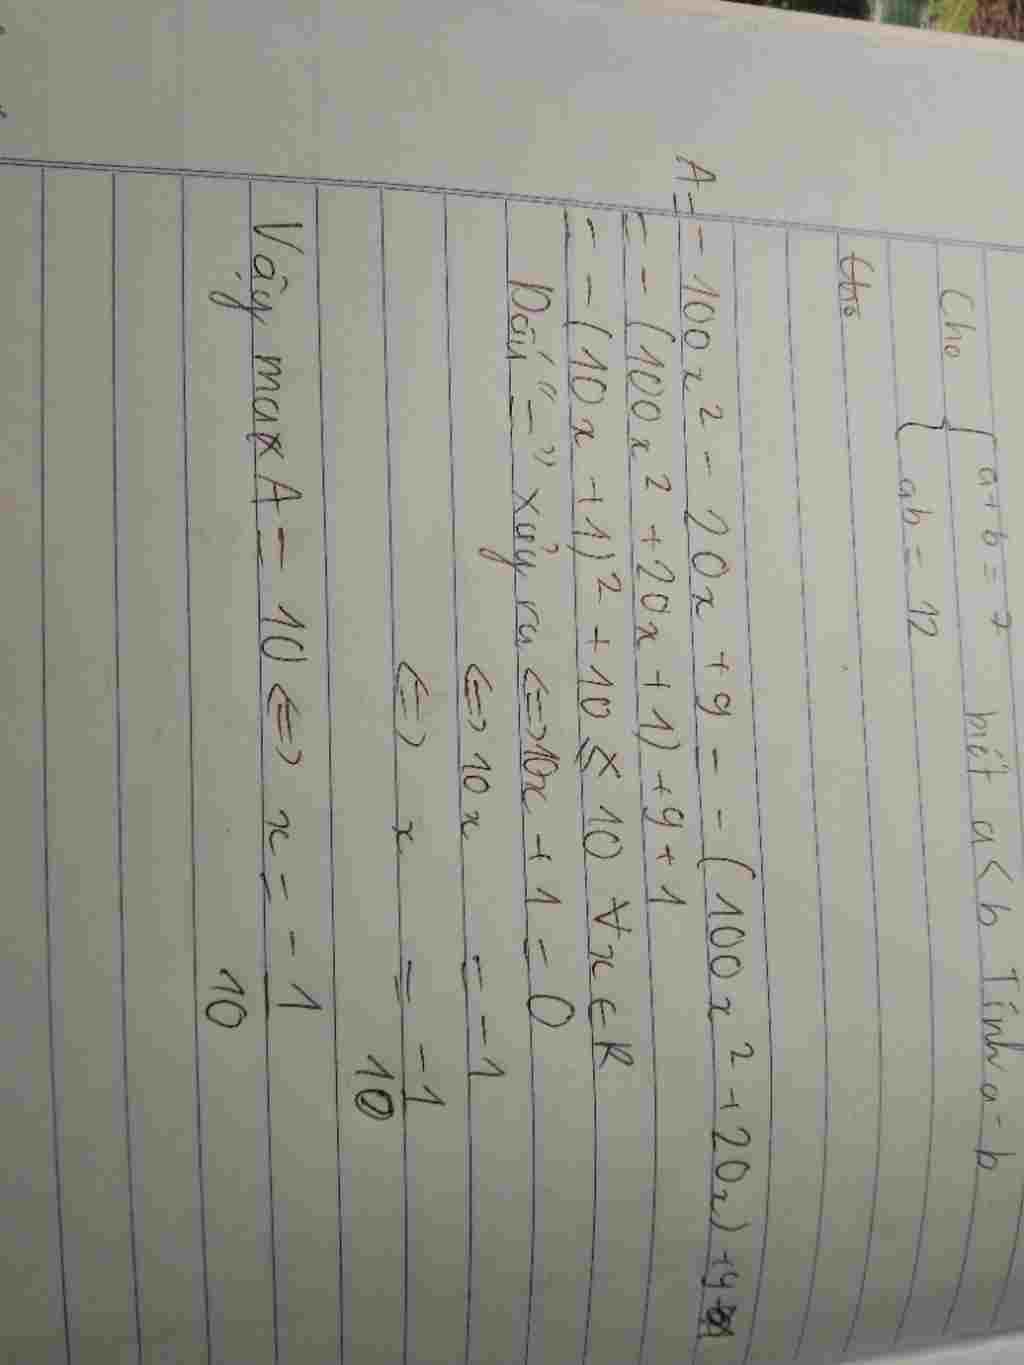 Cho { a + b = 7 biết a < b Tính a - b
ab = 12
Cho
A = - 100x² - 20x + 9 = - (100x² + 20x) + 9
= - (100x² + 20x + 1) + 9 + 1
= - (10x + 1)² + 10 ≤ 10 ∀x ∈ R
Dấu "=" xảy ra <=> 10x + 1 = 0
<=> 10x = -1
<=> x = -1/10
Vậy max A = 10 <=> x = -1/10